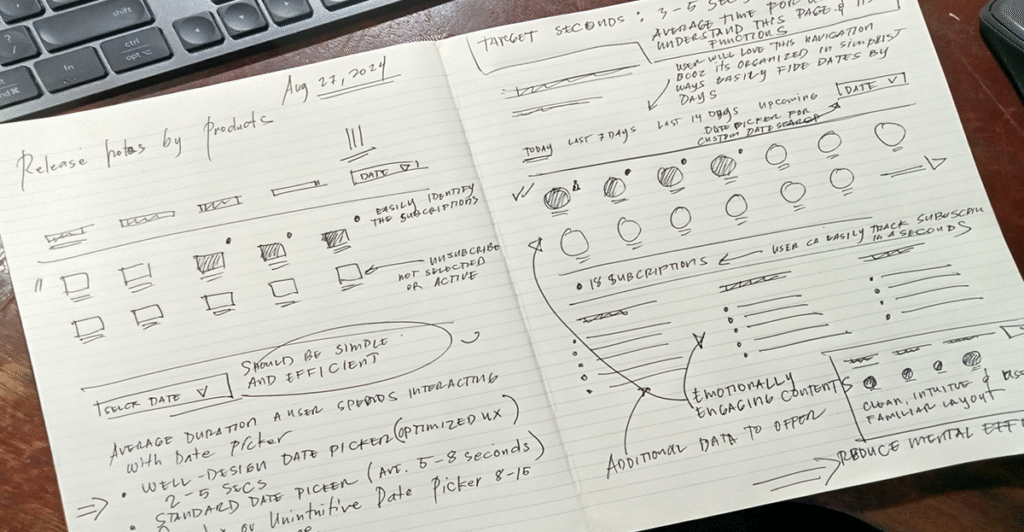 shift
ctrl
opt
fn
Aug 27, 2024
Release notes by products
DATE
EASILY IDENTIFY
THE SUBSCRIPTIONS
UNSUBSCRIBE
NOT SELECTED
OR ACTIVE
SHOULD BE SIMPLE
AND EFFICIENT
DATE
AVERAGE DURATION A USER SPENDS INTERACTING
with Date picker
WELL-DESIGN DATE PICKER (OPTIMIZED UX)
2-5 SECS
STANDARD DATE PICKER (AVE. 5-8 seconds)
or Unintuitive Date Picker 8-15
TARGET SECONDS: 3-5
AVERAGE TIME FOR
UNDERSTAND THIS PAGE & ITS
FUNCTIONS
USER WILL LOVE THIS NAVIGATION
BCOZ ITS ORGANIZED IN SIMPLIST
WAYS EASILY FIDE DATES BY
DAYS
TODAY LAST 7 DAYS LAST 14 DAYS upcoming
DATE
DATE PICKER FOR
CUSTOM DATE SEARCH
18 SUBSCRIPTIONS
USER CA EASILY TRACK
IN A SECONDS
EMOTIONALLY
ENGAGING CONTENTS
ADDITIONAL DATA TO OFFER
CLEAR, INTUITIVE &
FAMILIAR LAYOUT
REDUCE MENTAL